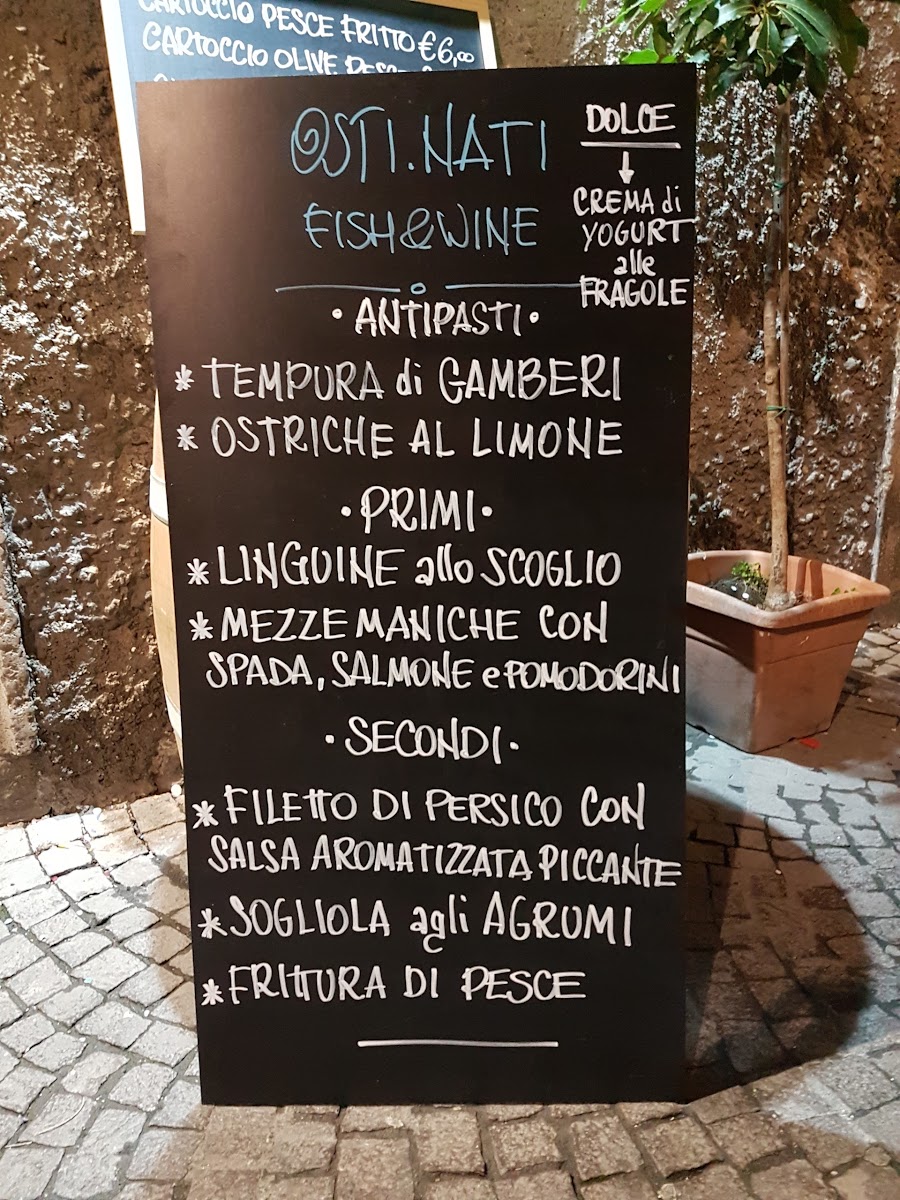 CARTOCCIO PESCE FRITTO €6,00
CARTOCCIO OLIVE
OSTI.NATI
FISH&WINE
DOLCE
CREMA di
YOGURT
alle
FRAGOLE
• ANTIPASTI •
* TEMPURA di GAMBERI
* OSTRICHE AL LIMONE
• PRIMI •
* LINGUINE allo SCOGLIO
* MEZZE MANICHE CON
SPADA, SALMONE e POMODORINI
• SECONDI •
* FILETTO DI PERSICO CON
SALSA AROMATIZZATA PICCANTE
* SOGLIOLA agli AGRUMI
* FRITTURA DI PESCE